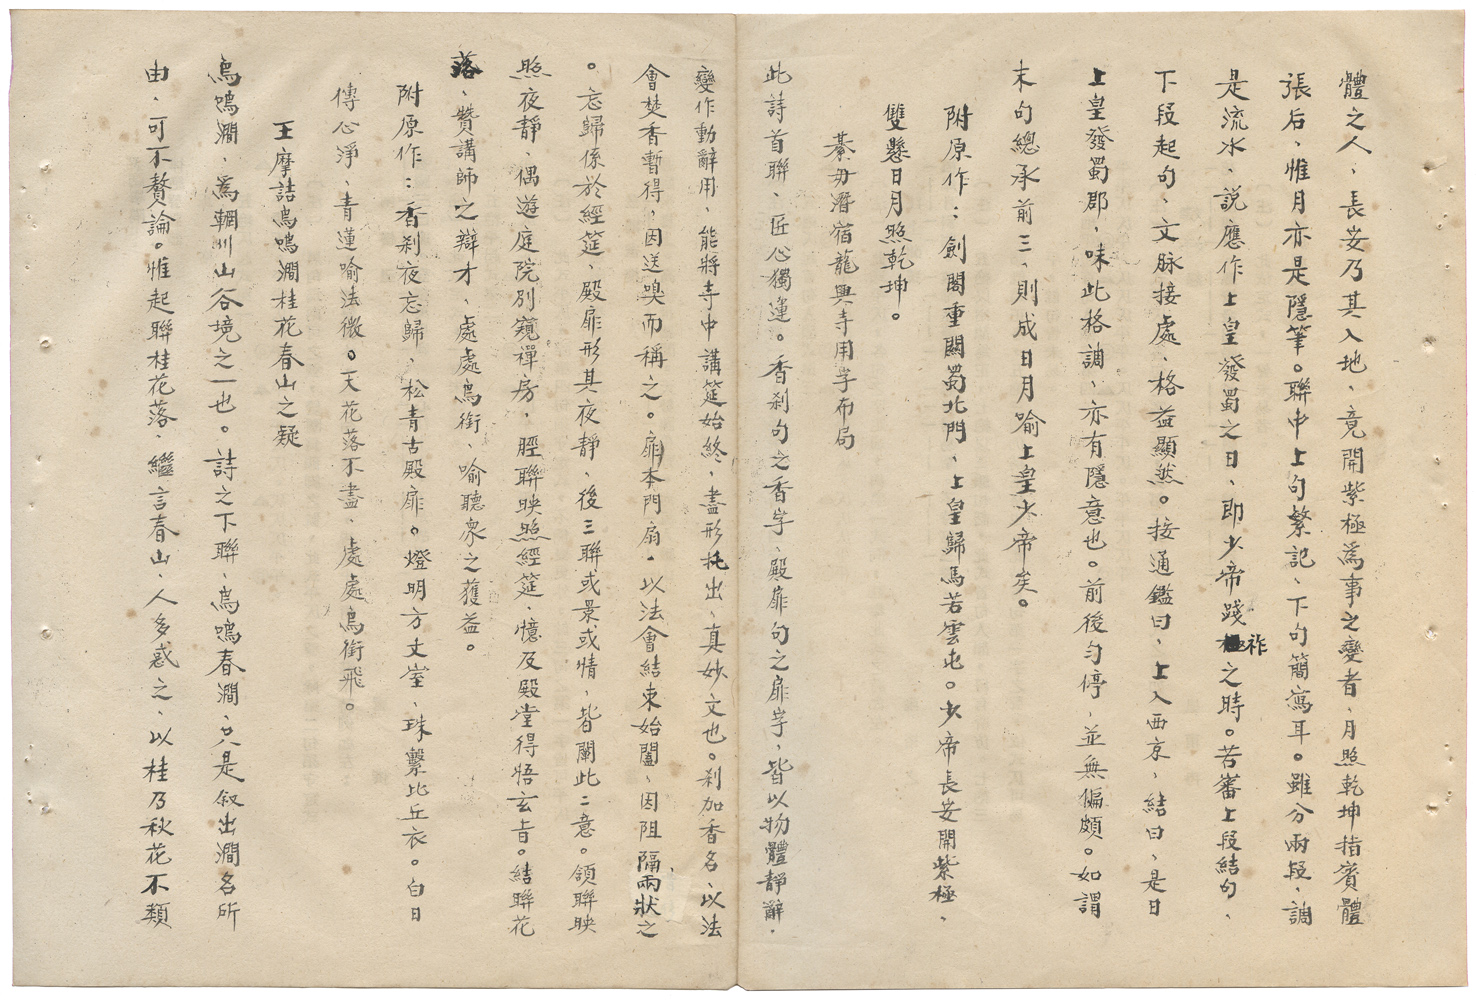 體之人、長安乃其入地、竟開紫極為事之變者、月照乾坤指賓體
張后、惟月亦是隱筆。聯中上句繁記、下句簡寫耳。雖分兩段、調
是流水、説應作上皇發蜀之日、即少帝踐祚之時。苦審上段結句、
下段起句、文脉接處、格益顯然。接通鑑曰、上入西京、結曰、是日
上皇發蜀郡、味此格調、亦有隱意也。前後勻停、並無偏頗。如謂
末句總承前三、則成日月喻上皇少帝矣。
附原作：劍閣重關蜀北門、上皇歸馬若雲屯。少帝長安開紫極、
雙懸日月照乾坤。
綦毋潛宿龍興寺用字布局
此詩首聯、匠心獨運。香刹句之香字、殿扉句之扉字、皆以物體靜辭、
變作動辭用、能將寺中講筵始終、盡形托出、真妙文也。刹加香名、以法
會焚香暫得、因送嗅而稱之。扉本門扇、以法會結束始闔、因阻隔兩狀之
。忘歸係於經筵、殿扉形其夜靜、後三聯或景或情、皆闡此二意。領聯映
照夜靜、偶遊庭院別窺禪房、脛聯映照經筵、憶及殿堂得悟玄旨。結聯花
落、贊講師之辯才、處處鳥銜、喻聽衆之獲益。
附原作：香刹夜忘歸、松青古殿扉。燈明方丈室、珠繫比丘衣。白日
傳心淨、青蓮喻法微。天花落不盡、處處鳥銜飛。
王摩詰鳥鳴澗桂花春山之疑
鳥鳴澗、為輞川山谷境之一也。詩之下聯、鳥鳴春澗、只是叙出澗名所
由、可不贅論。惟起聯桂花落、繼言春山、人多惑之、以桂乃秋花不類